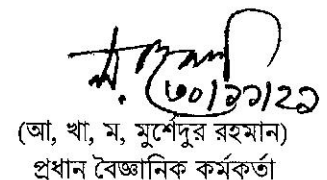 ৩০/১১/২১
(আ, খা, ম, মুর্শেদুর রহমান)
প্রধান বৈজ্ঞানিক কর্মকর্তা